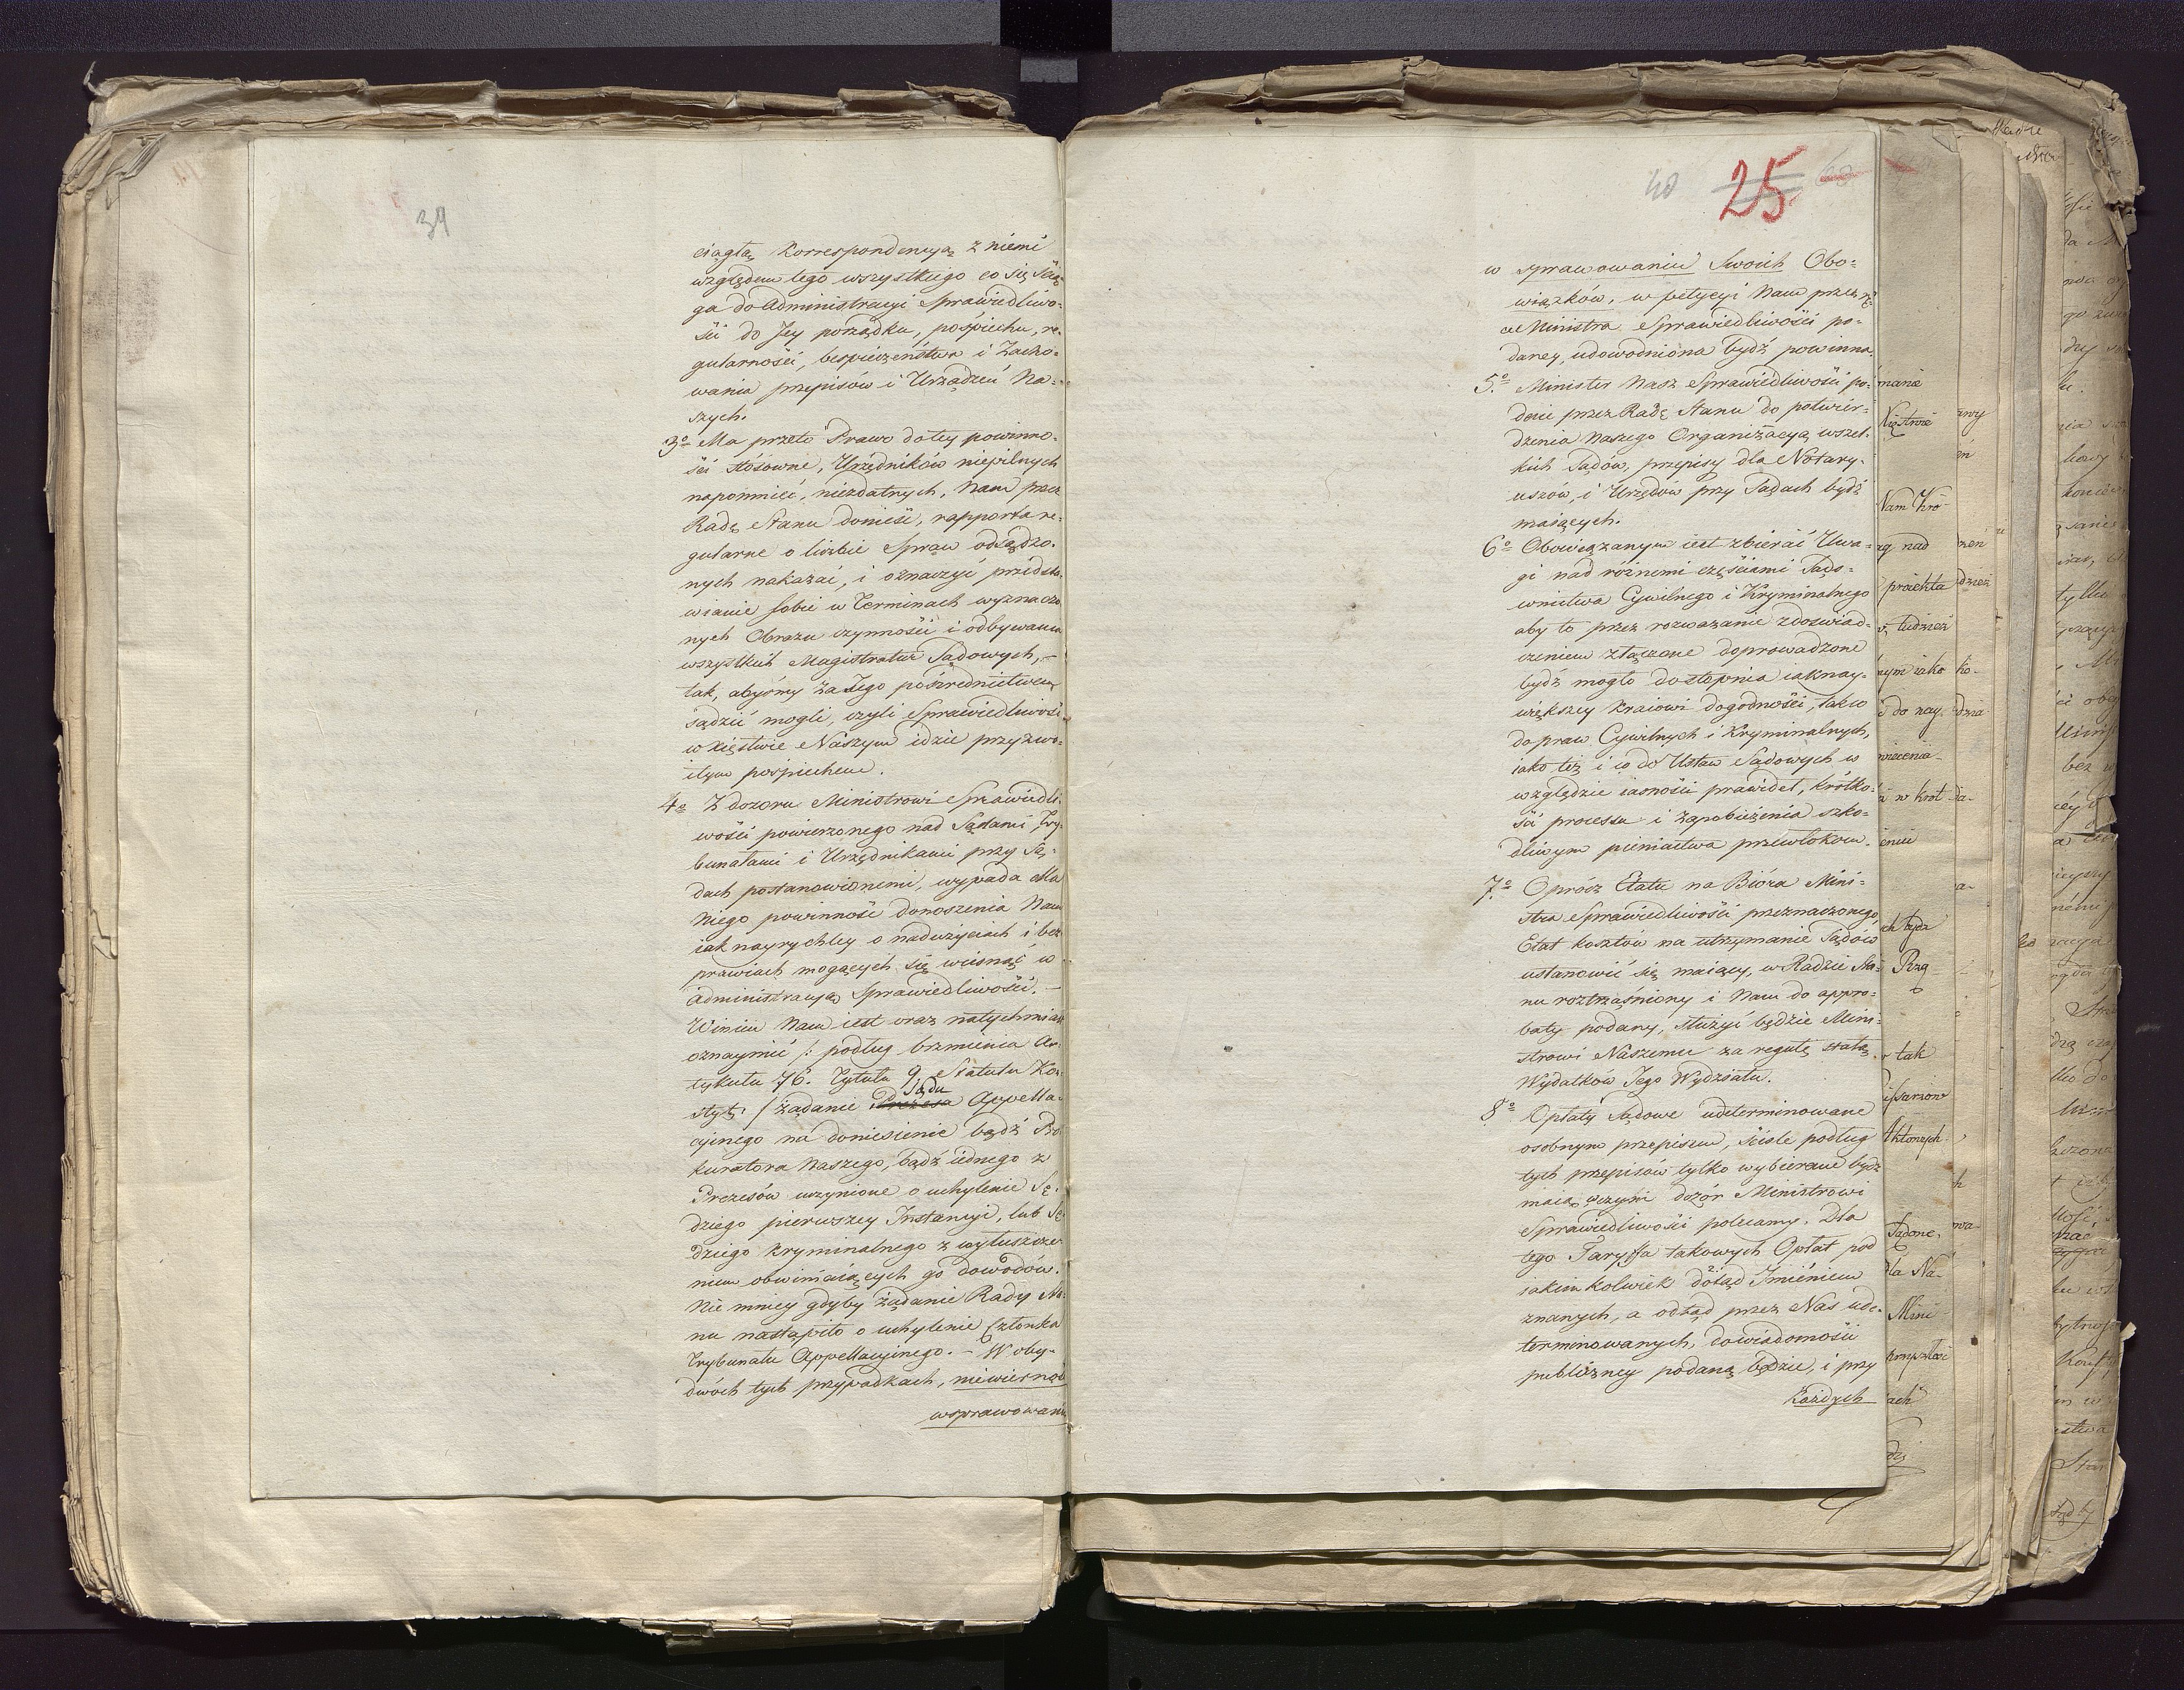 39
ciągłą Korrespondencyą z niemi
względem tego wszystkiego co się ścią
ga do Administracyi Sprawiedliwo=
ści do Jey porządku, pośpiechu, re=
gularności, bespieczeństwa i Zacho=
wania przepisów i Urządzeń Na=
szych.
3o Ma przeto Prawo do tey powinno=
ści stósowne, Urzędników niepilnych
napomnieć, niezdatnych, Nam przez
Radę Stanu donieść, rapporta re=
gularne o liczbie Spraw odsądzo=
nych nakazać, i oznaczyć przedsta=
wianie sobie w Terminach wyznaczo
nych Obrazu czynności i odbywania
wszystkich Magistratur Sądowych, —
tak, abyśmy za Jego pośrednictwem
sądzić mogli, czyli Sprawiedliwość
w Xięstwie Naszym idzie przyzwo=
itym pośpiechem.
4o Z dozoru Ministrowi Sprawiedli=
wości powierzonego nad Sądami Try=
bunałami i Urzędnikami przy Są=
dach postanowionemi, wypada dla
Niego powinność donoszenia Nam
iak nayrychley o nadużyciach i bez
prawiach mogących się wcisnąć w
administracyą Sprawiedliwości. —
Winien Nam iest oraz natychmiast
oznaymić /: podług brzmienia Ar=
tykułu 76. Tytułu 9. Statutu Kon=
styt: / żądanie Prezesa Sądu Appella=
cyinego na doniesienie bądź Pro=
kuratora Naszego, bądź iednego z
Prezesów uczynione o uchylenie Sę=
dziego pierwszey Instancyi, lub Sę
dziego kryminalnego z wyłuszcze=
niem obwiniaiących go dowodów.
Nie mniey gdyby żądanie Rady Sta=
nu nastąpiło o uchylenie Członka
Trybunału Appellacyinego. — W oby=
dwóch tych przypadkach, niewierność
w sprawowaniu
40 25
w sprawowaniu Swoich Obo=
wiązków, w petycyi Nam przez rę
ce Ministra Sprawiedliwości po=
daney, udowodniona bydź powinna.
5o Minister Nasz Sprawiedliwości po=
daie przez Radę Stanu do potwier=
dzenia Naszego Organizacyą wszel=
kich Sądów, przepisy dla Notary=
uszów, i Urzędów przy Sądach bydź
maiących.
6o Obowiązanym iest zbierać Uwa=
gi nad różnemi częściami Sądo=
wnictwa Cywilnego i Kryminalnego
aby to przez rozważanie z doświad=
czeniem złączone doprowadzone
bydź mogło do stopnia iaknay=
większey Kraiowi dogodności, tak co
do praw Cywilnych i Kryminalnych,
iako też i co do Ustaw Sądowych w
względzie iasności prawideł, krótko=
ści processu i zapobieżenia szko=
dliwym pieniactwa przewłokom.
7o Oprócz Etatu na Bióra Mini=
stra Sprawiedliwości przeznaczonego,
Etat kosztów na utrzymanie Sądów
ustanowić się maiący, w Radzie Sta=
nu roztrząśniony i Nam do appro=
baty podany, służyć będzie Mini=
strowi Naszemu za regułę stałą
Wydatków Jego Wydziału.
8o Opłaty Sądowe udeterminowane
osobnym przepisem, ściśle podług
tych przepisów tylko wybierane bydź
maią, w czym dozór Ministrowi
Sprawiedliwości polecamy. Dla
tego Taryffa takowych Opłat pod
iakimkolwiek dotąd Imieniem
znanych, a odtąd przez Nas ude=
terminowanych, do wiadomości
publiczney podaną będzie, i przy
każdych